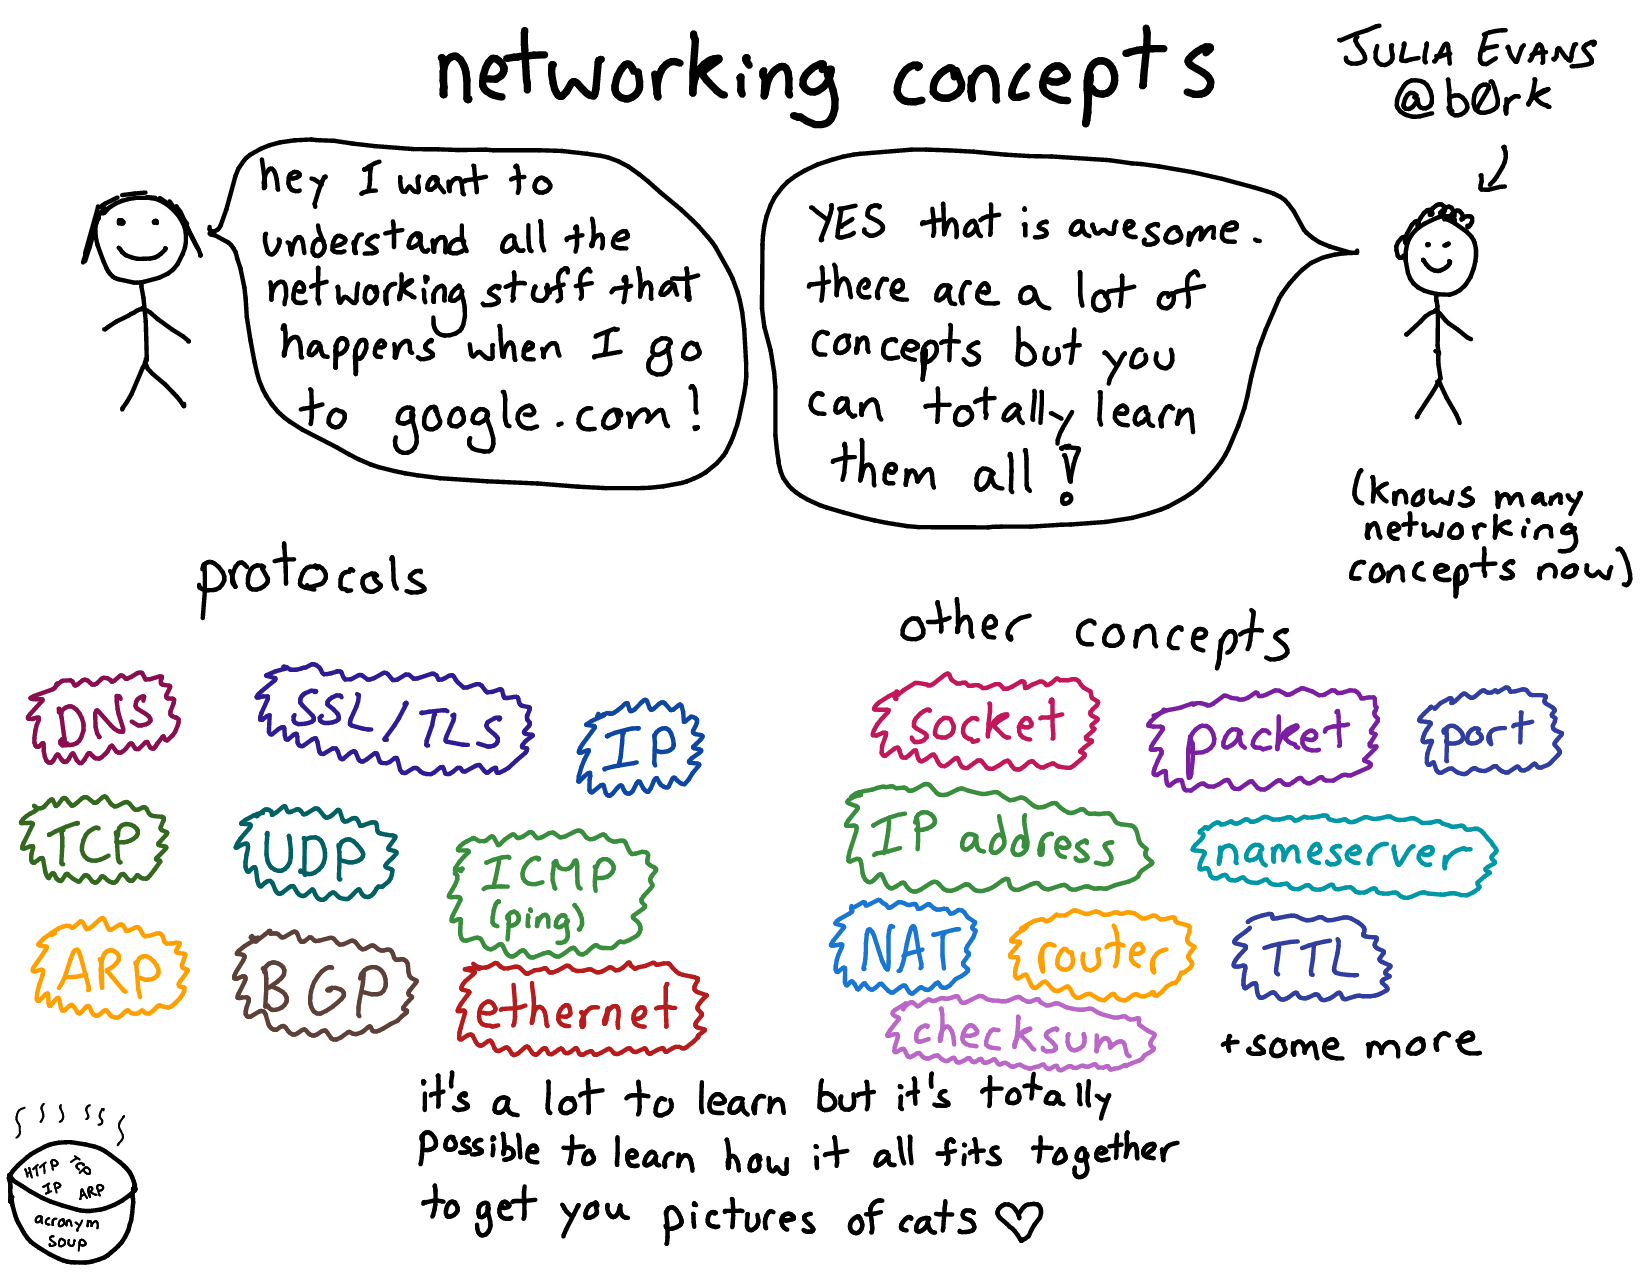 networking concepts
JULIA EVANS
@b0rk
hey I want to
understand all the
networking stuff that
happens when I go
to google.com!
YES that is awesome.
there are a lot of
concepts but you
can totally learn
them all!
(knows many
networking
concepts now)
protocols
DNS
SSL/TLS
IP
TCP
UDP
ICMP
(ping)
ARP
BGP
ethernet
other concepts
socket
packet
port
IP address
nameserver
NAT
router
TTL
checksum
+some more
it's a lot to learn but it's totally
possible to learn how it all fits together
to get you pictures of cats ♡
HTTP
TCP
IP
ARP
acronym
soup